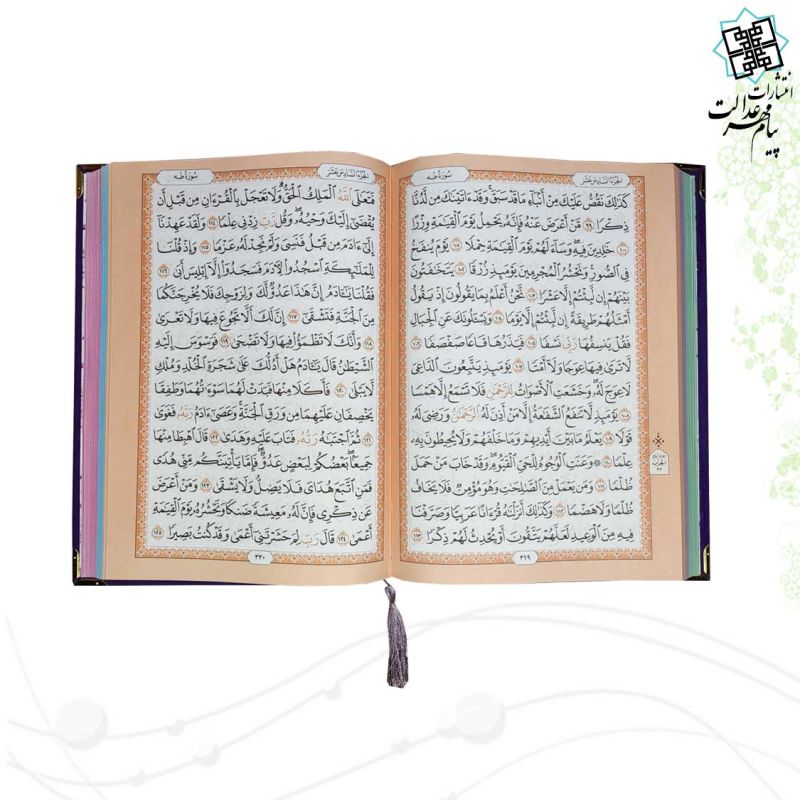 انتشارات
پیام مهر عدالت
الجزء السادس عشر سورة طه
كَذَٰلِكَ نَقُصُّ عَلَيْكَ مِنْ أَنۢبَآءِ مَا قَدْ سَبَقَ ۚ وَقَدْ ءَاتَيْنَٰكَ مِن لَّدُنَّا
ذِكْرًا ٩٩ مَّنْ أَعْرَضَ عَنْهُ فَإِنَّهُۥ يَحْمِلُ يَوْمَ ٱلْقِيَٰمَةِ وِزْرًا
١٠٠ خَٰلِدِينَ فِيهِ ۖ وَسَآءَ لَهُمْ يَوْمَ ٱلْقِيَٰمَةِ حِمْلًا ١٠١ يَوْمَ يُنفَخُ
فِى ٱلصُّورِ ۚ وَنَحْشُرُ ٱلْمُجْرِمِينَ يَوْمَئِذٍ زُرْقًا ١٠٢ يَتَخَٰفَتُونَ
بَيْنَهُمْ إِن لَّبِثْتُمْ إِلَّا عَشْرًا ١٠٣ نَّحْنُ أَعْلَمُ بِمَا يَقُولُونَ إِذْ يَقُولُ
أَمْثَلُهُمْ طَرِيقَةً إِن لَّبِثْتُمْ إِلَّا يَوْمًا ١٠٤ وَيَسْـَٔلُونَكَ عَنِ ٱلْجِبَالِ
فَقُلْ يَنسِفُهَا رَبِّى نَسْفًا ١٠٥ فَيَذَرُهَا قَاعًا صَفْصَفًا ١٠٦
لَّا تَرَىٰ فِيهَا عِوَجًا وَلَآ أَمْتًا ١٠٧ يَوْمَئِذٍ يَتَّبِعُونَ ٱلدَّاعِىَ
لَا عِوَجَ لَهُۥ ۖ وَخَشَعَتِ ٱلْأَصْوَاتُ لِلرَّحْمَٰنِ فَلَا تَسْمَعُ إِلَّا هَمْسًا
١٠٨ يَوْمَئِذٍ لَّا تَنفَعُ ٱلشَّفَٰعَةُ إِلَّا مَنْ أَذِنَ لَهُ ٱلرَّحْمَٰنُ وَرَضِىَ لَهُۥ
قَوْلًا ١٠٩ يَعْلَمُ مَا بَيْنَ أَيْدِيهِمْ وَمَا خَلْفَهُمْ وَلَا يُحِيطُونَ بِهِۦ
عِلْمًا ١١٠ ۞ وَعَنَتِ ٱلْوُجُوهُ لِلْحَىِّ ٱلْقَيُّومِ ۖ وَقَدْ خَابَ مَنْ حَمَلَ
ظُلْمًا ١١١ وَمَن يَعْمَلْ مِنَ ٱلصَّٰلِحَٰتِ وَهُوَ مُؤْمِنٌ فَلَا يَخَافُ
ظُلْمًا وَلَا هَضْمًا ١١٢ وَكَذَٰلِكَ أَنزَلْنَٰهُ قُرْءَانًا عَرَبِيًّا وَصَرَّفْنَا
فِيهِ مِنَ ٱلْوَعِيدِ لَعَلَّهُمْ يَتَّقُونَ أَوْ يُحْدِثُ لَهُمْ ذِكْرًا ١١٣
٣١٩
الحزب
٣٢
الجزء السادس عشر سورة طه
فَتَعَٰلَى ٱللَّهُ ٱلْمَلِكُ ٱلْحَقُّ ۗ وَلَا تَعْجَلْ بِٱلْقُرْءَانِ مِن قَبْلِ أَن
يُقْضَىٰٓ إِلَيْكَ وَحْيُهُۥ ۖ وَقُل رَّبِّ زِدْنِى عِلْمًا ١١٤ وَلَقَدْ عَهِدْنَآ
إِلَىٰٓ ءَادَمَ مِن قَبْلُ فَنَسِىَ وَلَمْ نَجِدْ لَهُۥ عَزْمًا ١١٥ وَإِذْ قُلْنَا
لِلْمَلَٰٓئِكَةِ ٱسْجُدُوا۟ لِءَادَمَ فَسَجَدُوٓا۟ إِلَّآ إِبْلِيسَ أَبَىٰ ١١٦
فَقُلْنَا يَٰٓـَٔادَمُ إِنَّ هَٰذَا عَدُوٌّ لَّكَ وَلِزَوْجِكَ فَلَا يُخْرِجَنَّكُمَا
مِنَ ٱلْجَنَّةِ فَتَشْقَىٰٓ ١١٧ إِنَّ لَكَ أَلَّا تَجُوعَ فِيهَا وَلَا تَعْرَىٰ
١١٨ وَأَنَّكَ لَا تَظْمَؤُا۟ فِيهَا وَلَا تَضْحَىٰ ١١٩ فَوَسْوَسَ إِلَيْهِ
ٱلشَّيْطَٰنُ قَالَ يَٰٓـَٔادَمُ هَلْ أَدُلُّكَ عَلَىٰ شَجَرَةِ ٱلْخُلْدِ وَمُلْكٍ
لَّا يَبْلَىٰ ١٢٠ فَأَكَلَا مِنْهَا فَبَدَتْ لَهُمَا سَوْءَٰتُهُمَا وَطَفِقَا
يَخْصِفَانِ عَلَيْهِمَا مِن وَرَقِ ٱلْجَنَّةِ ۚ وَعَصَىٰٓ ءَادَمُ رَبَّهُۥ فَغَوَىٰ
١٢١ ثُمَّ ٱجْتَبَٰهُ رَبُّهُۥ فَتَابَ عَلَيْهِ وَهَدَىٰ ١٢٢ قَالَ ٱهْبِطَا مِنْهَا
جَمِيعًۢا ۖ بَعْضُكُمْ لِبَعْضٍ عَدُوٌّ ۖ فَإِمَّا يَأْتِيَنَّكُم مِّنِّى هُدًى
فَمَنِ ٱتَّبَعَ هُدَاىَ فَلَا يَضِلُّ وَلَا يَشْقَىٰ ١٢٣ وَمَنْ أَعْرَضَ
عَن ذِكْرِى فَإِنَّ لَهُۥ مَعِيشَةً ضَنكًا وَنَحْشُرُهُۥ يَوْمَ ٱلْقِيَٰمَةِ
أَعْمَىٰ ١٢٤ قَالَ رَبِّ لِمَ حَشَرْتَنِىٓ أَعْمَىٰ وَقَدْ كُنتُ بَصِيرًا ١٢٥
٣٢٠